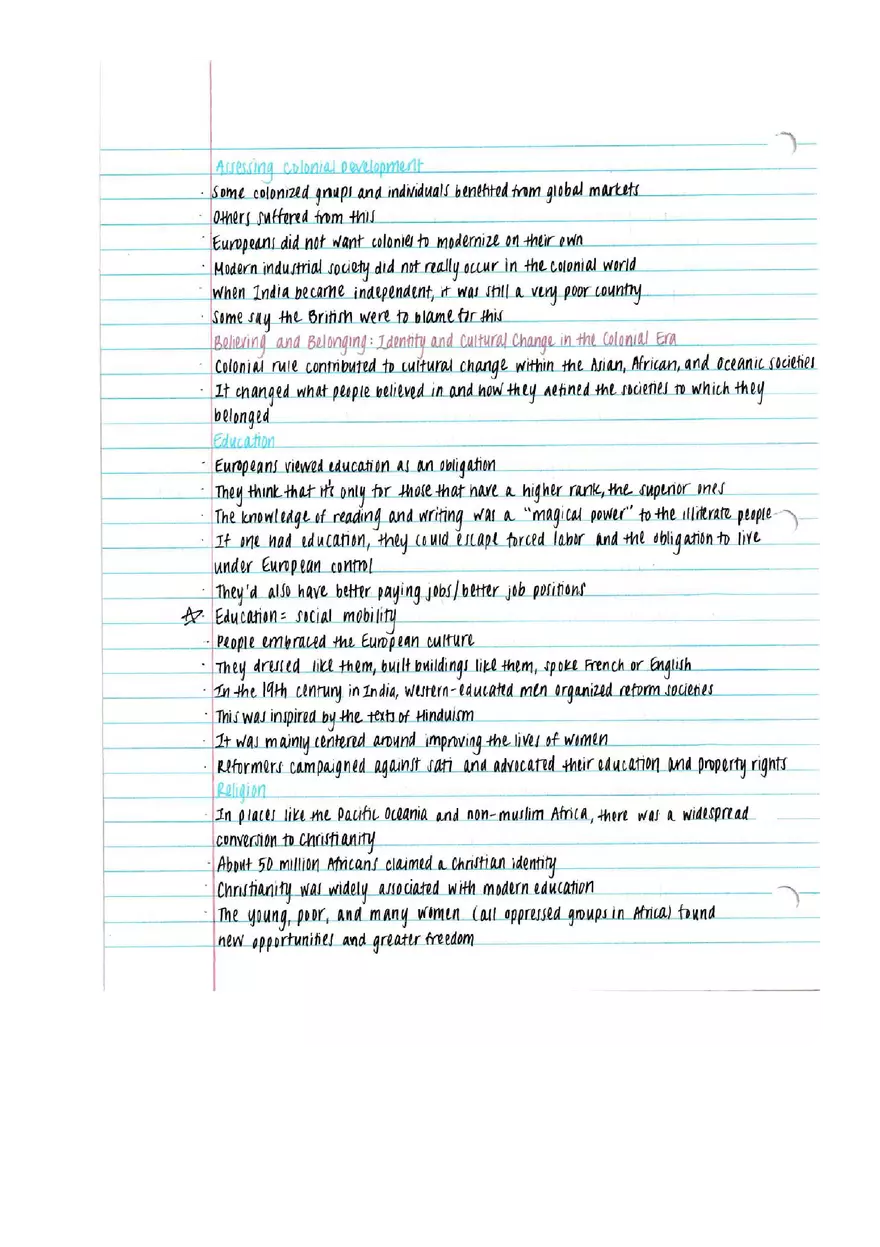 Assessing Colonial Development
· Some colonized groups and individuals benefited from global markets
· Others suffered from this
· Europeans did not want colonies to modernize on their own
· Modern industrial society did not really occur in the colonial world
· When India became independent, it was still a very poor country
· Some say the British were to blame for this
Believing and Belonging: Identity and Cultural Change in the Colonial Era
· Colonial rule contributed to cultural change within the Asian, African, and Oceanic societies
· It changed what people believed in and how they defined the societies to which they
belonged
Education
· Europeans viewed education as an obligation
· They think that it's only for those that have a higher rank, the superior ones
· The knowledge of reading and writing was a "magical power" to the illiterate people
· If one had education, they could escape forced labor and the obligation to live
under European control
· They'd also have better paying jobs/better job positions
☆· Education = social mobility
· People embraced the European culture
· They dressed like them, built buildings like them, spoke French or English
· In the 19th century in India, western-educated men organized reform societies
· This was inspired by the texts of Hinduism
· It was mainly centered around improving the lives of women
· Reformers campaigned against sati and advocated their education and property rights
Religion
· In places like the Pacific Oceania and non-muslim Africa, there was a widespread
conversion to Christianity
· About 50 million Africans claimed a Christian identity
· Christianity was widely associated with modern education
· The young, poor, and many women (all oppressed groups in Africa) found
new opportunities and greater freedom